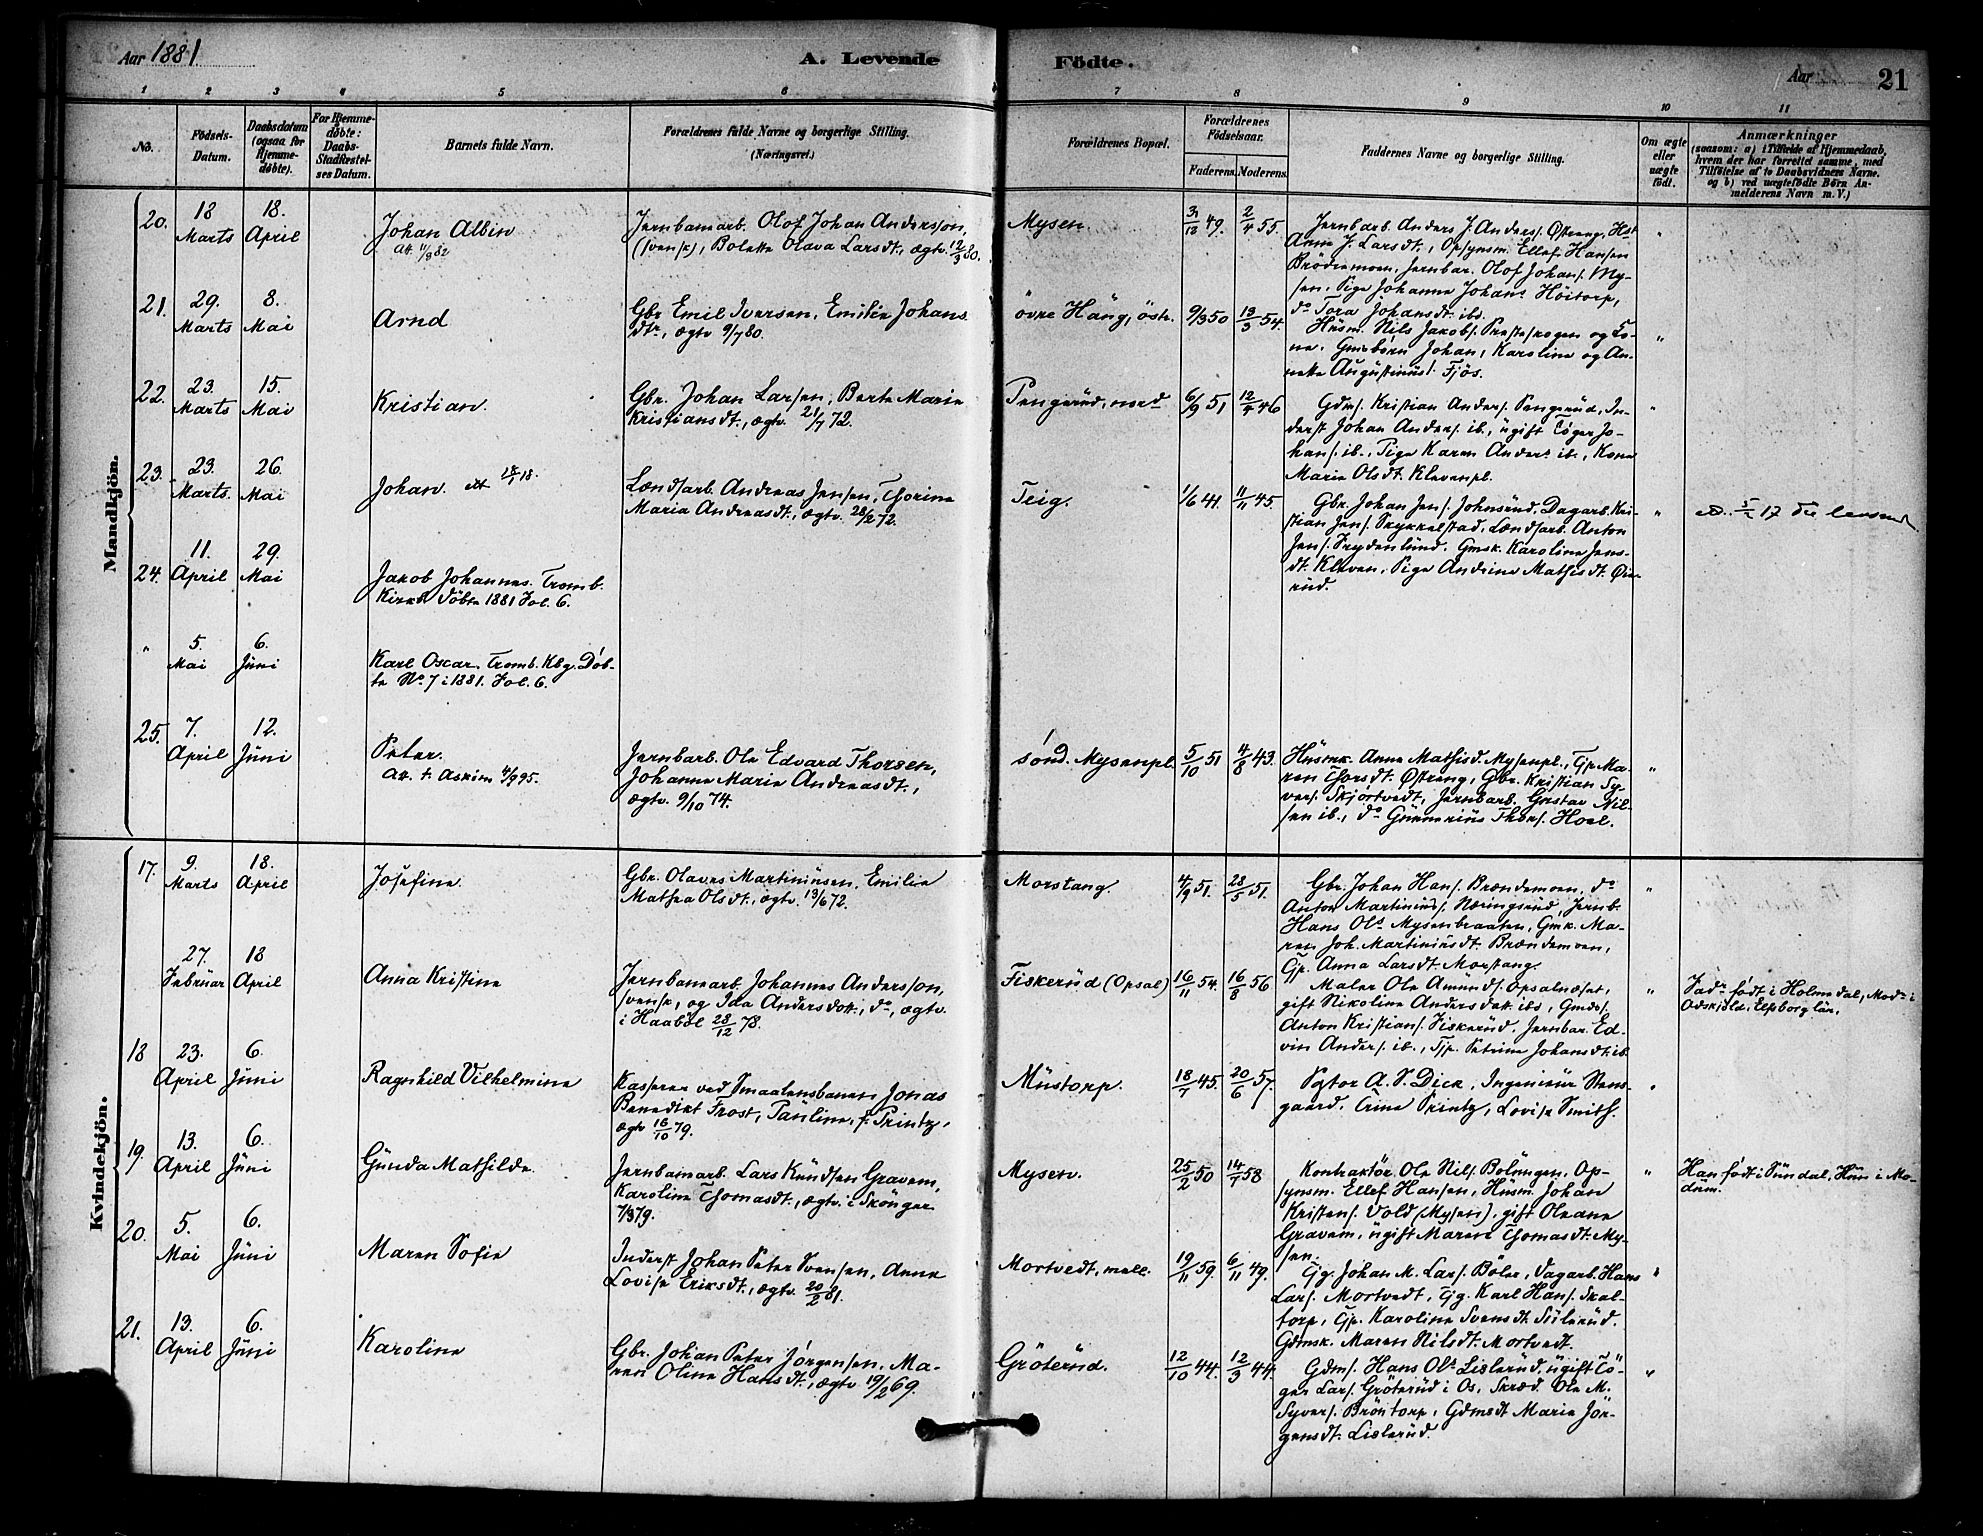 Aar 1881
A. Levende
Födte.
Aar
21
1 2 3 4 5 6 7 8 9 10 11
No.
Födsels-
Datum.
Daabsdatum
(ogsaa for
Hjemme-
döbte).
For Hjemme-
döbte:
Daabs-
Stadfæstel-
ses Datum.
Barnets fulde Navn.
Forældrenes fulde Navne og borgerlige Stilling.
(Næringsvei.)
Forældrenes Bopæl.
Forældrenes
Födselsaar.
Faderens. Moderens.
Faddernes Navne og borgerlige Stilling.
Om ægte
eller
uægte
födt.
Anmærkninger
(saasom: a) i Tilfælde af Hjemmedaab,
hvem der har forrettet samme, med
Tilföielse af to Daabsvidners Navne.
og b) ved uægtefödte Börn An-
melderens Navn m. V.)
Mandkjön.
20.
18
Marts
18.
April
Johan Albin
Att. 11/9 82
Jernbanarb. Olof Johan Andersson,
(svensk), Bolette Olava Larsdt., ægtv. 12/3 80.
Mysen
3/12 49.
2/4 55.
Jernbarb. Anders J. Anders. Østreng, Hst
Anne J. Larsdt., Opsynsm. Ellef Hansen
Brödremoen, Jernbar. Olof Johans. My-
sen, Pige Johanne Johans Höitorp,
do Tora Johansdt. ibd.
"
21.
29.
Marts
8.
Mai
Arnd
Gbr Emil Iversen, Emilie Johans
dtr, ægtv 9/7 80.
övre Häng, östr.
9/3 50
13/3 54.
Husm. Nils Jakobs. Præsteskogen og Ko-
ne, Gmsbörn Johan, Karoline og An-
nette Augustinius. Fjös.
"
22.
23.
Marts
15.
Mai
Kristian.
Gbr. Johan Larsen, Berte Marie
Kristiansdt., ægtv. 21/7 72.
Pengerud, nord
6/9 51
12/4 46
Gdm. Kristian Anders. Pengerud, In-
derst Johan Anders. ib., ugift Töger Jo-
hans. ib., Pige Karen Anders ib., Kone
Marie Olsdt. Klevenpl.
"
23.
23.
Marts.
26.
Mai
Johan. att 18/1 18.
Lændsarb. Andreas Jensen, Thorine
Maria Andreasdt., ægtv. 28/2 72.
Teig.
1/6 41.
11/11 45.
Gbr. Johan Jens. Johnsrud, Dagarb. Kri-
stian Jens. Trykkelstad, Lændsarb. Anton
Jens. Frydenlund, Gmsk. Karoline Jens-
dt. Kleven, Pige Andrine Mathisdt. Øie-
rud.
"
24.
11.
April
29.
Mai
Jakob Johannes. Tromb.
Kirkeb Döbte 1881 Fol. 6.
"
5.
Mai
6.
Juni
Karl Oscar. Tromb. Kbg. Döb-
te No. 7 i 1881. Fol. 6.
25.
7.
April
12.
Juni
Peter.
Att. t. Askim 4/9 95.
Jernbarb. Ole Edvard Thorsen,
Johanne Marie Andreasdt.,
ægtv. 9/10 74
sönd. Mysenpl.
5/10 51
4/8 43.
Husmk. Anne Mathisd. Mysenpl., Tp Ma-
ren Thorsdt. Østreng, Gbr. Kristian Sy-
vers. Skjörtvedt, Jernbarb. Gustav Nil-
sen ib., do Gunnerius Thors. Hoel.
"
Kvindekjön.
17.
9.
Marts
18.
April
Josefine
Gbr. Olaves Martiniusen, Emilie
Mathea Olsdt., ægtv. 13/6 72.
Morstang.
4/9 51.
28/5 51.
Gbr. Johan Hans. Brændemoen, do
Anton Martinius. Næringsrud, Jernb.
Hans Ols Mysenbraaten, Gmk. Ma-
ren Joh. Martiniusdt. Brændemoen,
Tp. Anna Larsdt. Morstang.
"
27.
Februar
18
April
Anna Kristine
Jernbanarb. Johannes Andersson,
svensk, og Ida Andersdott., do, ægtv.
i Haaböl 28/12 78.
Fiskerud (Opsal)
16/11 54.
16/8 56
Maler Ole Amunds. Opsalnæset,
gift Nikoline Andersdatt. ibd, Gmds.
Anton Kristians. Fiskerud, Jernbar. Ed-
vin Anders. ib., Tjp. Petrine Johansdt. ib.
"
Fadr födt i Holmedal, Modr i
Ödskjöld. Elfsborg län.
18
23.
April
6.
Juni
Ragnhild Vilhelmine
Kasserer ved Smaalensbanen Jonas
Benedikt Frost, Pauline, f. Printz,
ægtv 16/10 79.
Mustorp.
18/7 45.
20/6 57.
Sgtor A. S. Dick, Ingeniør Stens-
gaard, Trine Printz, Lovise Smith.
"
19.
13.
April
6.
Juni
Gunda Mathilde.
Jernbanarb. Lars Knudsen Gravem,
Karoline Thomasdt., ægtv. i Skönger
7/3 79.
Mysen.
25/2 50
14/7 58
Kontraktör Ole Nils. Bolungen, Op-
synsm. Ellef Hansen, Husm. Johan
Kristens. Vold (Mysen), gift Oleane
Gravem, ugift Maren Thomasdt. My-
sen.
"
Han födt i Sundal, Hun i Mo-
dum.
20.
5.
Mai
6.
Juni
Maren Sofie
Inderst Johan Peter Svensen, Anne
Lovise Eriksdt., ægtv. 20/2 81.
Mortvedt, mell.
19/11 59.
6/11 49.
Tjg. Johan M. Lars. Böler, Dagarb. Hans
Lars. Mortvedt, Tjg. Karl Hans. Skal-
torp, Tjp. Karoline Svensdt. Sölerud.
Gdmsk. Maren Nilsdt. Mortvedt.
"
21.
13.
April
6.
Juni
Karoline
Gbr. Johan Peter Jörgensen, Ma-
ren Oline Hansdt., ægtv. 19/2 69.
Gröterud.
12/10 44.
12/3 44.
Gdm. Hans Ols Lislerud, ugift Tö-
ger Lars. Gröterud i Os, Skræd. Ole M.
Syvers. Bröntorp, Gdmsdt Marie Jör-
gensdt. Lislerud.
"